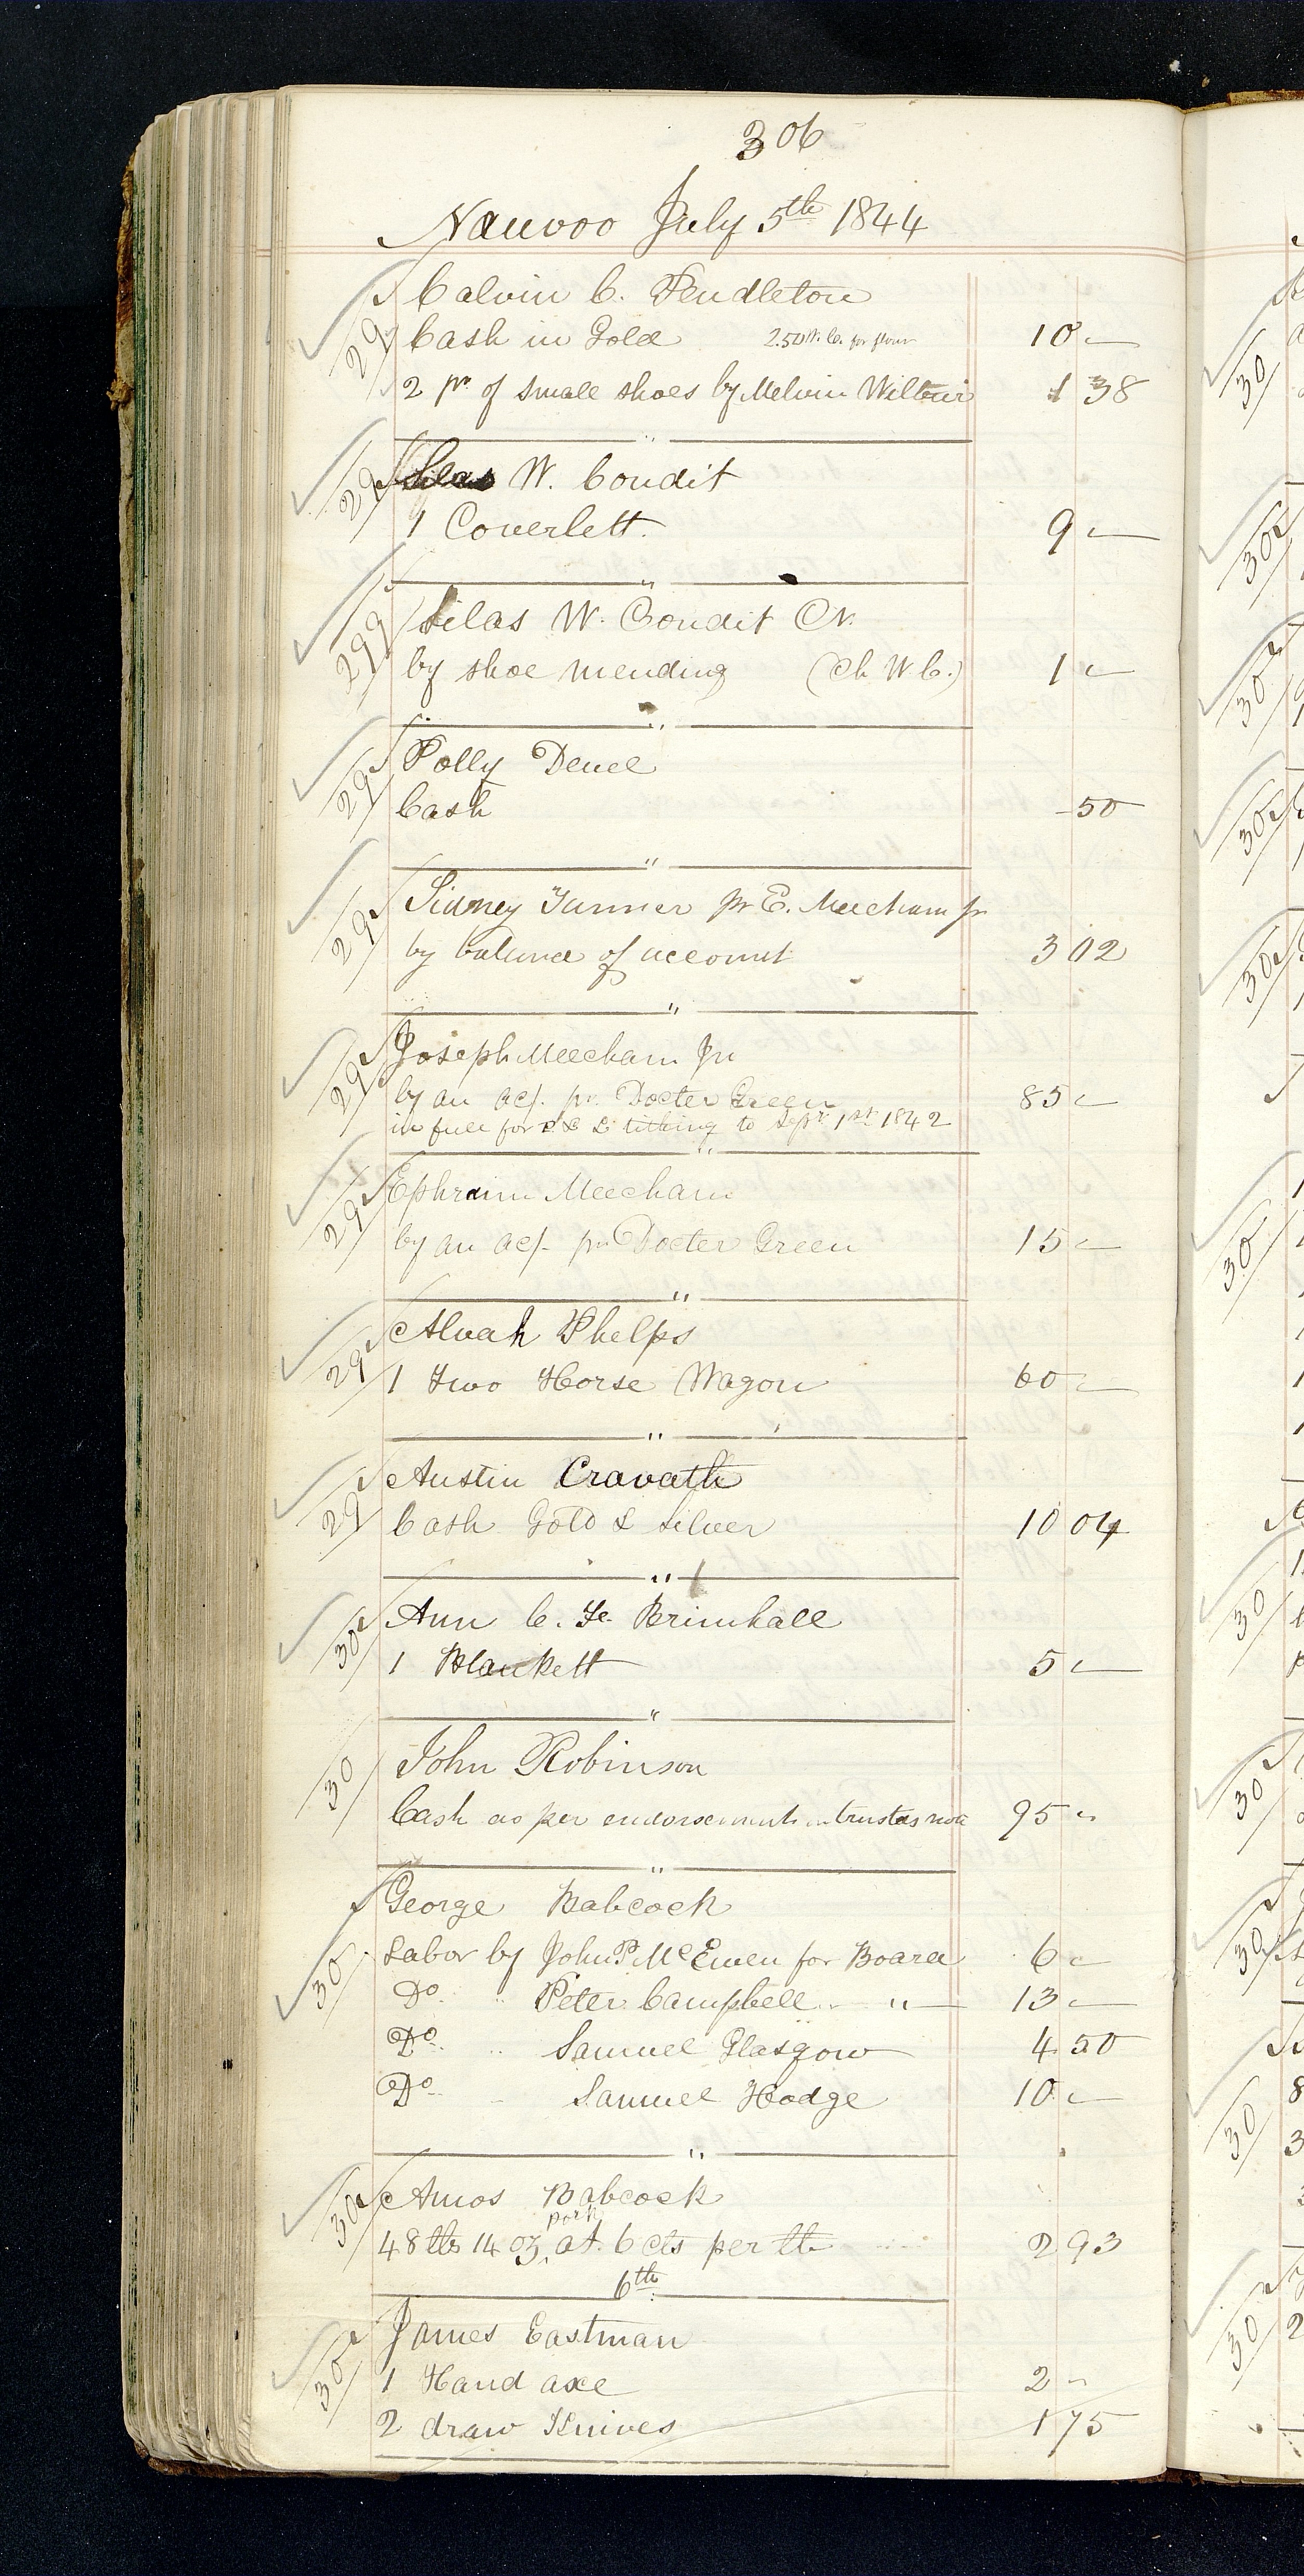 306
Nauvoo July 5th 1844
29 Calvin C. Pendleton
Cash in Gold 2.50 W. C. for flour 10 —
2 pr. of small shoes by Melvin Wilbur 1 38
"
29 Silas W. Condit
1 Coverlett. 9 —
"
29 Silas W. Condit Cr.
by shoe mending (Ch W. C.) 1 —
"
29 Polly Deuel
Cash - 50
"
29 Sidney Tanner pr E. Meecham jr
by balance of account 3 02
"
29 Joseph Meecham Jr
by an acf. pr. Docter Green 85 —
in full for tithing to Sept. 1st. 1842
"
29 Ephraim Meecham
by an acf. pr Docter Green 15 —
"
29 Alvah Phelps
1 Two Horse Wagon 60 —
"
29 Austin Cravath
Cash Gold & Silver 10 04
"
30 Ann C. Brimhall
1 Blankett 5 —
"
30 John Robinson
Cash as per endorsement on trustees note 95 "
"
George Babcock
30 Labor by John P. McEwen for Board 6 —
Do. " Peter Campbell " 13 —
Do. " Samuel Glasgow 4 50
Do. Samuel Hodge 10 —
"
30 Amos Babcock
pork
48 lbs 14 oz. at 6 cts per lb 2 93
6th.
James Eastman
30 1 Hand axe 2 "
2 draw Knives 1 75